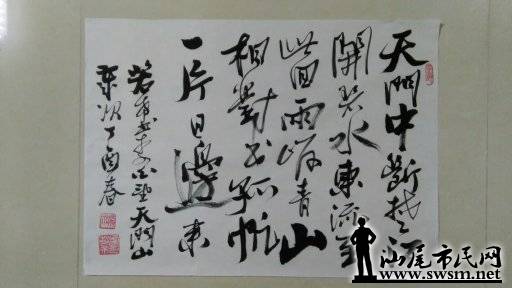 天門中斷楚江
開碧水東流至
此回兩岸青山
相對出孤帆
一片日邊來
書李白望天門山
歲次丁酉春
汕尾市民网
www.swsm.net